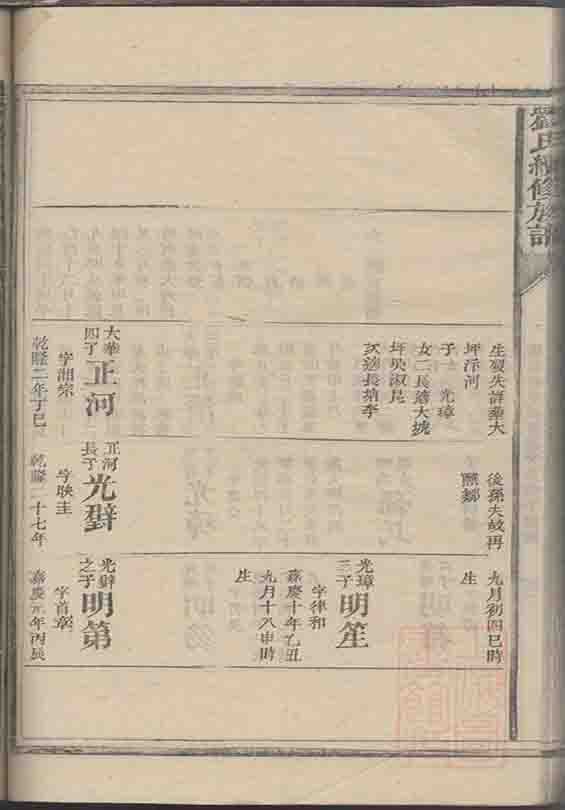 劉氏續修族譜
生歿失詳葬大
坪泝河
子一 光璋
女二長適大坡
坪吳淑昆
次適長塘李
大華
四子
正河
字湘宗
乾隆二年丁巳
後孫失故再
正河
長子
光璧
字映圭
乾隆二十七年
九月初四巳時
生
光璋
三子
明笙
字律和
嘉慶十年乙丑
九月十八申時
生
光璧
之子
明第
字首章
嘉慶元年丙辰